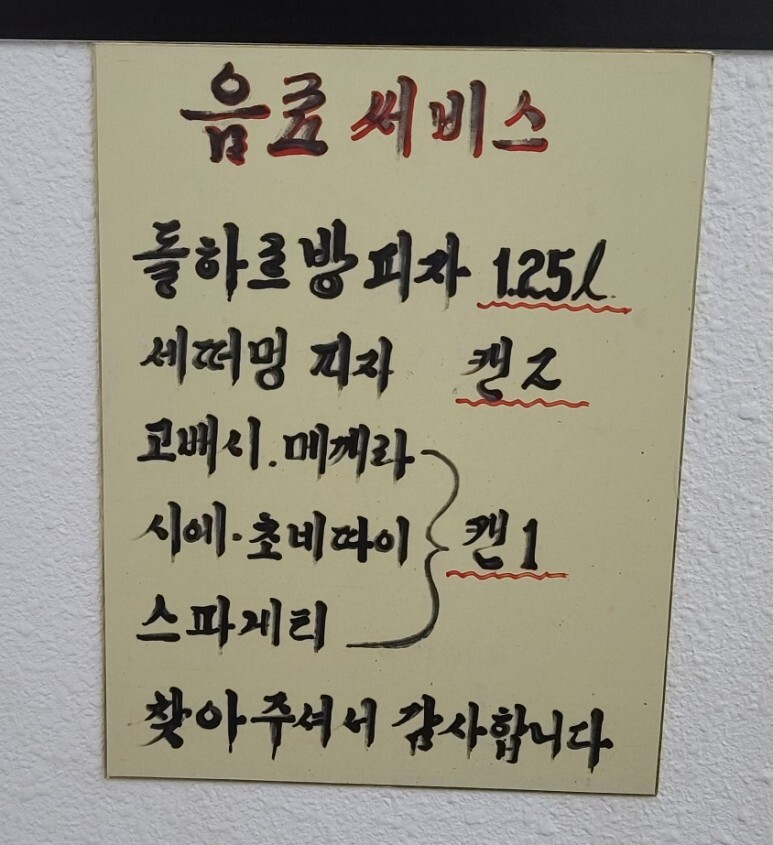 음료 써비스
돌하르방 피자 1.25ℓ
세떠멍 피자 캔 2
고배시. 메께라
시에·초비따이 캔 1
스파게티
찾아주셔서 감사합니다